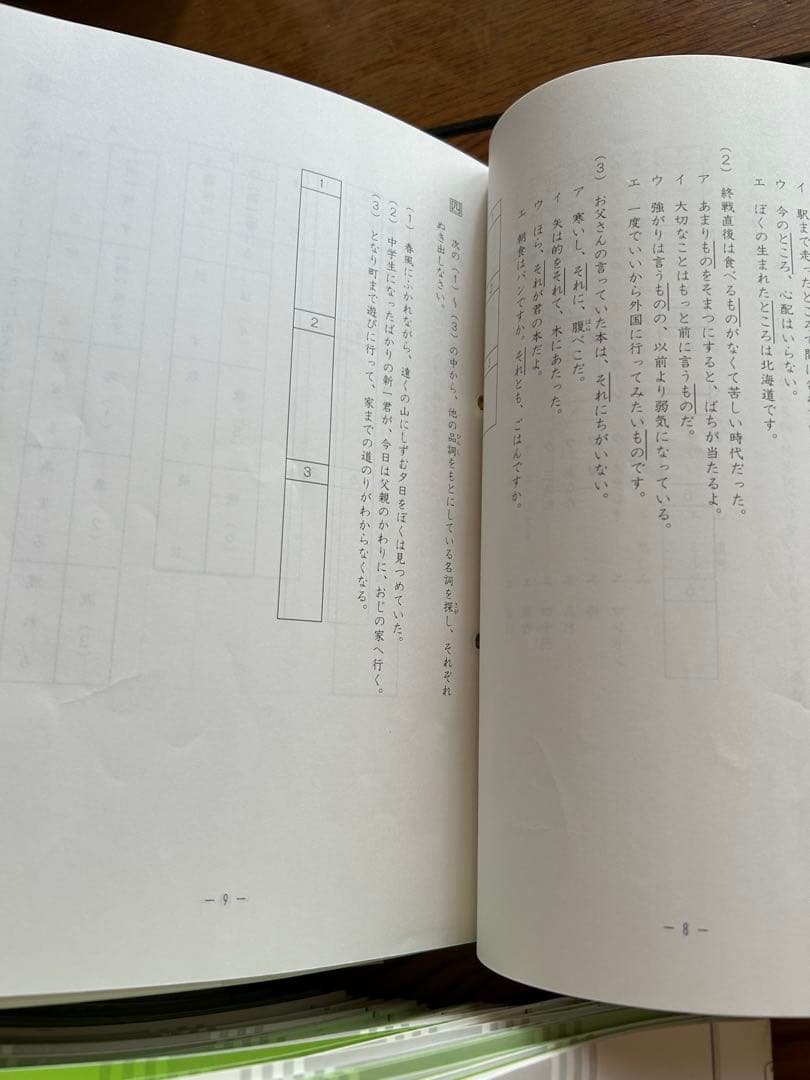 イ　駅まで走
ウ　今のところ、心配はいらない。
エ　ぼくの生まれたところは北海道です。
（2）　終戦直後は食べるものがなくて苦しい時代だった。
ア　あまりものをそまつにすると、ばちが当たるよ。
イ　大切なことはもっと前に言うものだ。
ウ　強がりは言うものの、以前より弱気になっている。
エ　一度でいいから外国に行ってみたいものです。
（3）　お父さんの言っていた本は、それにちがいない。
ア　寒いし、それに、腹ぺこだ。
イ　矢は的をそれて、木にあたった。
ウ　ほら、それが君の本だよ。
エ　朝食はパンですか。それとも、ごはんですか。
— 8 —
四　次の（1）〜（3）の中から、他の品詞をもとにしている名詞を探し、それぞれ
ぬき出しなさい。
（1）　春風にふかれながら、遠くの山にしずむ夕日をぼくは見つめていた。
（2）　中学生になったばかりの新一君が、今日は父親のかわりに、おじの家へ行く。
（3）　となり町まで遊びに行って、家までの道のりがわからなくなる。
1
2
3
— 9 —